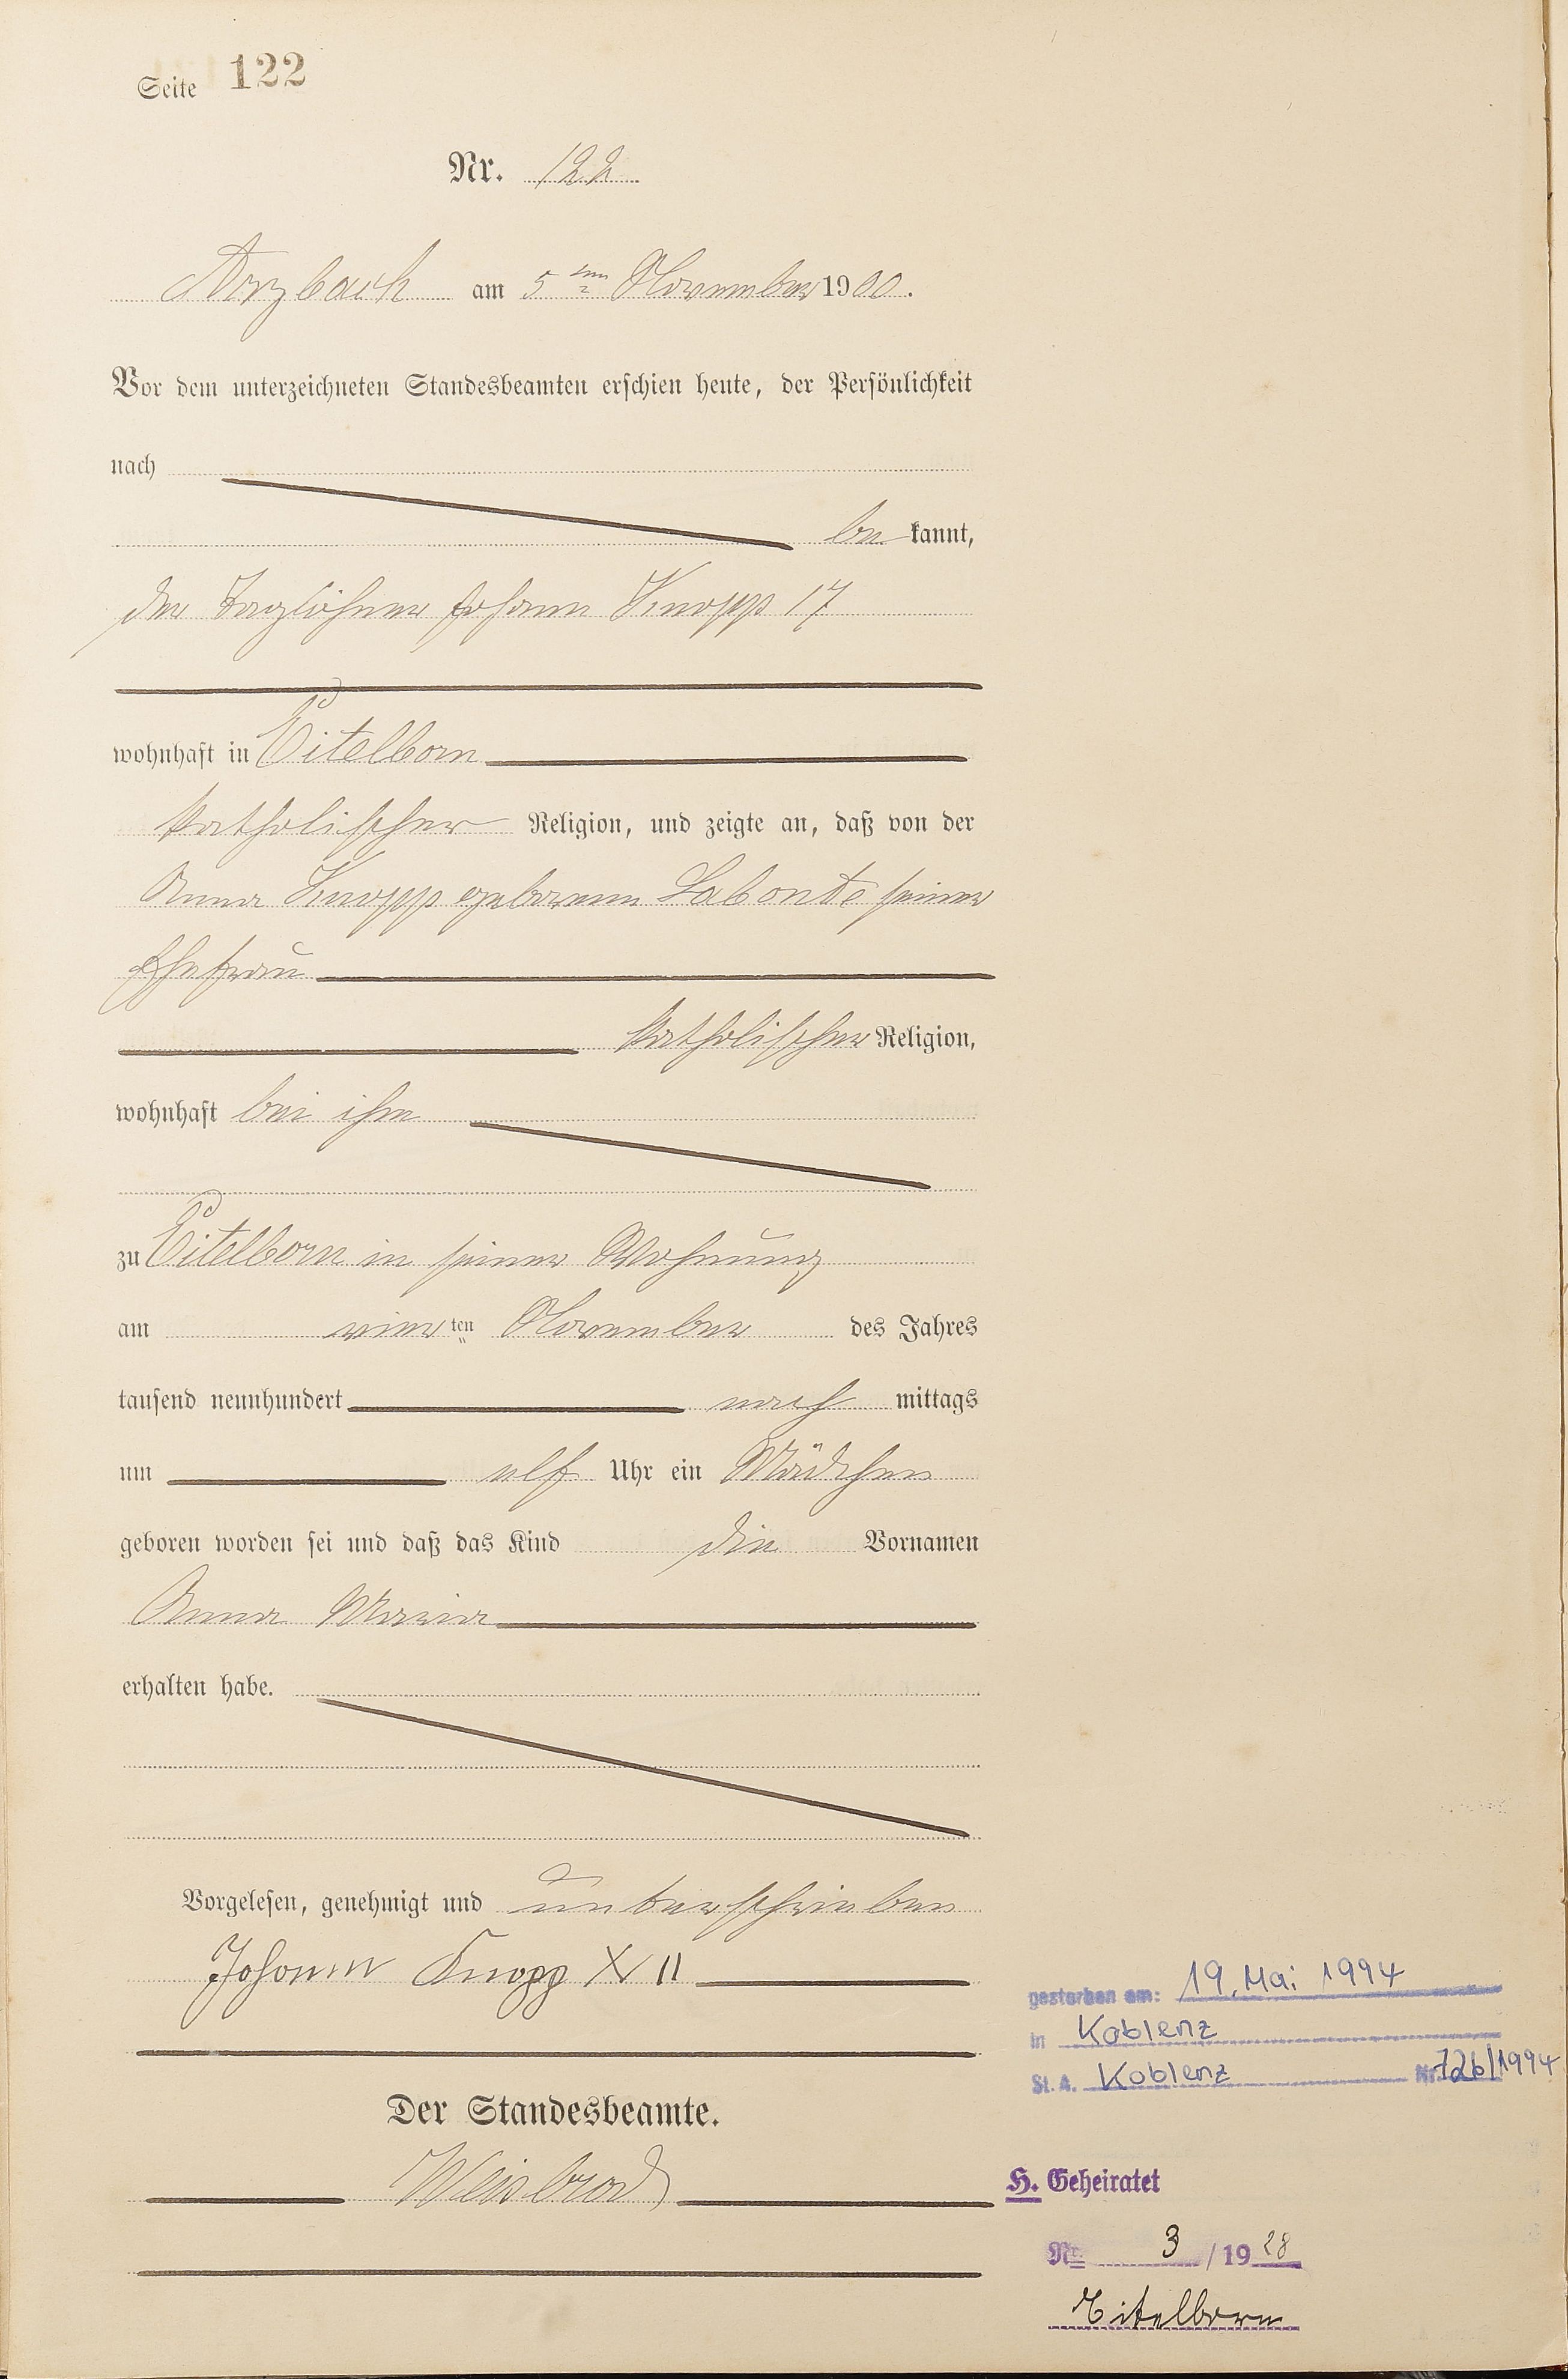 Seite 122
Nr. 122
Arzbach am 5ten November 1900.
Vor dem unterzeichneten Standesbeamten erschien heute, der Persönlichkeit
nach
be kannt,
der Taglöhner Johann Knopp 17
wohnhaft in Eitelborn
katholischer Religion, und zeigte an, daß von der
Anna Knopp geborene Labonte seiner
Ehefrau
katholischer Religion,
wohnhaft bei ihm
zu Eitelborn in seiner Wohnung
am vier ten November des Jahres
tausend neunhundert nach mittags
um elf Uhr ein Mädchen
geboren worden sei und daß das Kind die Vornamen
Anna Maria
erhalten habe.
Vorgelesen, genehmigt und unterschrieben
Johann Knopp XVII
Der Standesbeamte.
Weisbrod
gestorben am: 19. Mai 1994
in Koblenz
St. A. Koblenz Nr. 726/1994
H. Geheiratet
Nr. 3 / 1928
Eitelborn